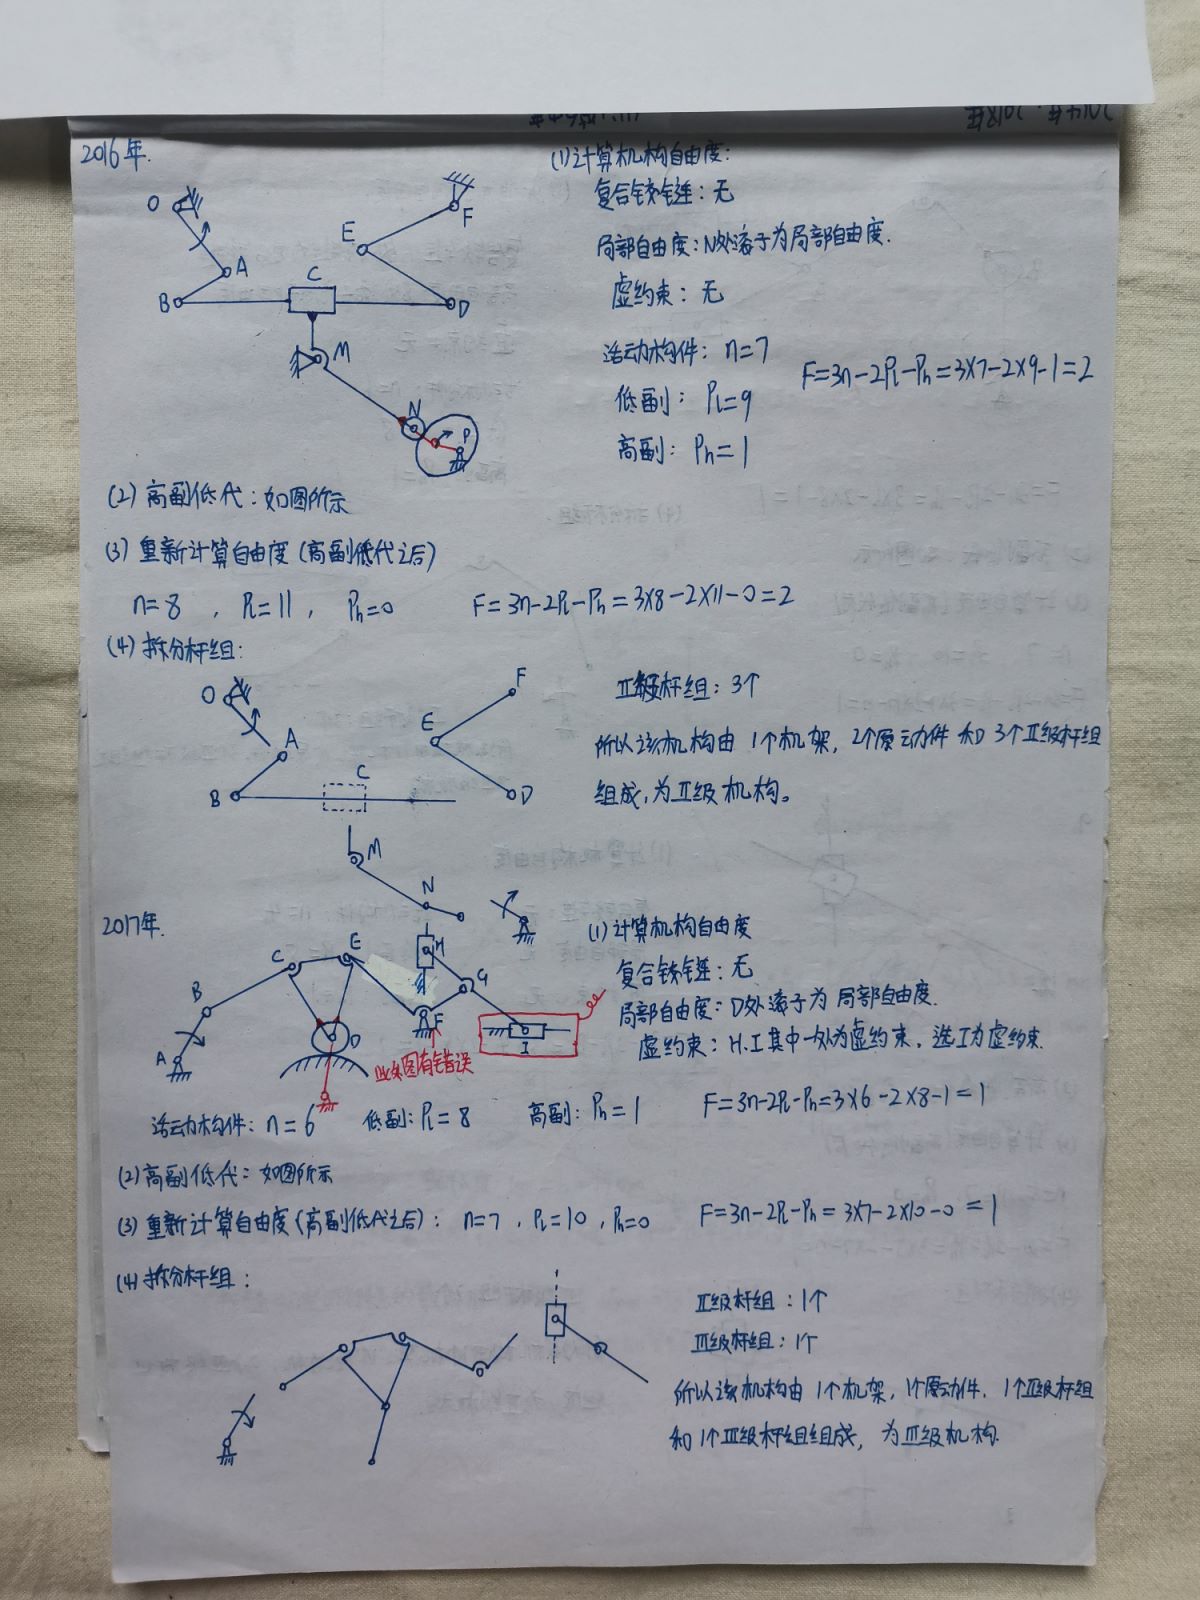 2016年.
(1)计算机构自由度:
复合铰链:无
局部自由度:N处滚子为局部自由度.
虚约束:无
活动构件:n=7
低副:Pl=9
高副:Ph=1
F=3n-2Pl-Ph=3×7-2×9-1=2
O
A
B
C
D
E
F
M
N
P
(2)高副低代:如图所示
(3)重新计算自由度(高副低代之后)
n=8,Pl=11,Ph=0 F=3n-2Pl-Ph=3×8-2×11-0=2
(4)拆分杆组:
O
A
B
C
D
E
F
M
N
II级杆组:3个
所以该机构由1个机架,2个原动件和3个II级杆组
组成,为II级机构。
2017年.
A
B
C
E
D
F
G
H
I
此处图有错误
(1)计算机构自由度
复合铰链:无
局部自由度:D处滚子为局部自由度.
虚约束:H.I其中一处为虚约束,选I为虚约束.
活动构件:n=6 低副:Pl=8 高副:Ph=1 F=3n-2Pl-Ph=3×6-2×8-1=1
(2)高副低代:如图所示
(3)重新计算自由度(高副低代之后):n=7,Pl=10,Ph=0 F=3n-2Pl-Ph=3×7-2×10-0=1
(4)拆分杆组:
II级杆组:1个
III级杆组:1个
所以该机构由1个机架,1个原动件.1个II级杆组
和1个III级杆组组成,为III级机构.